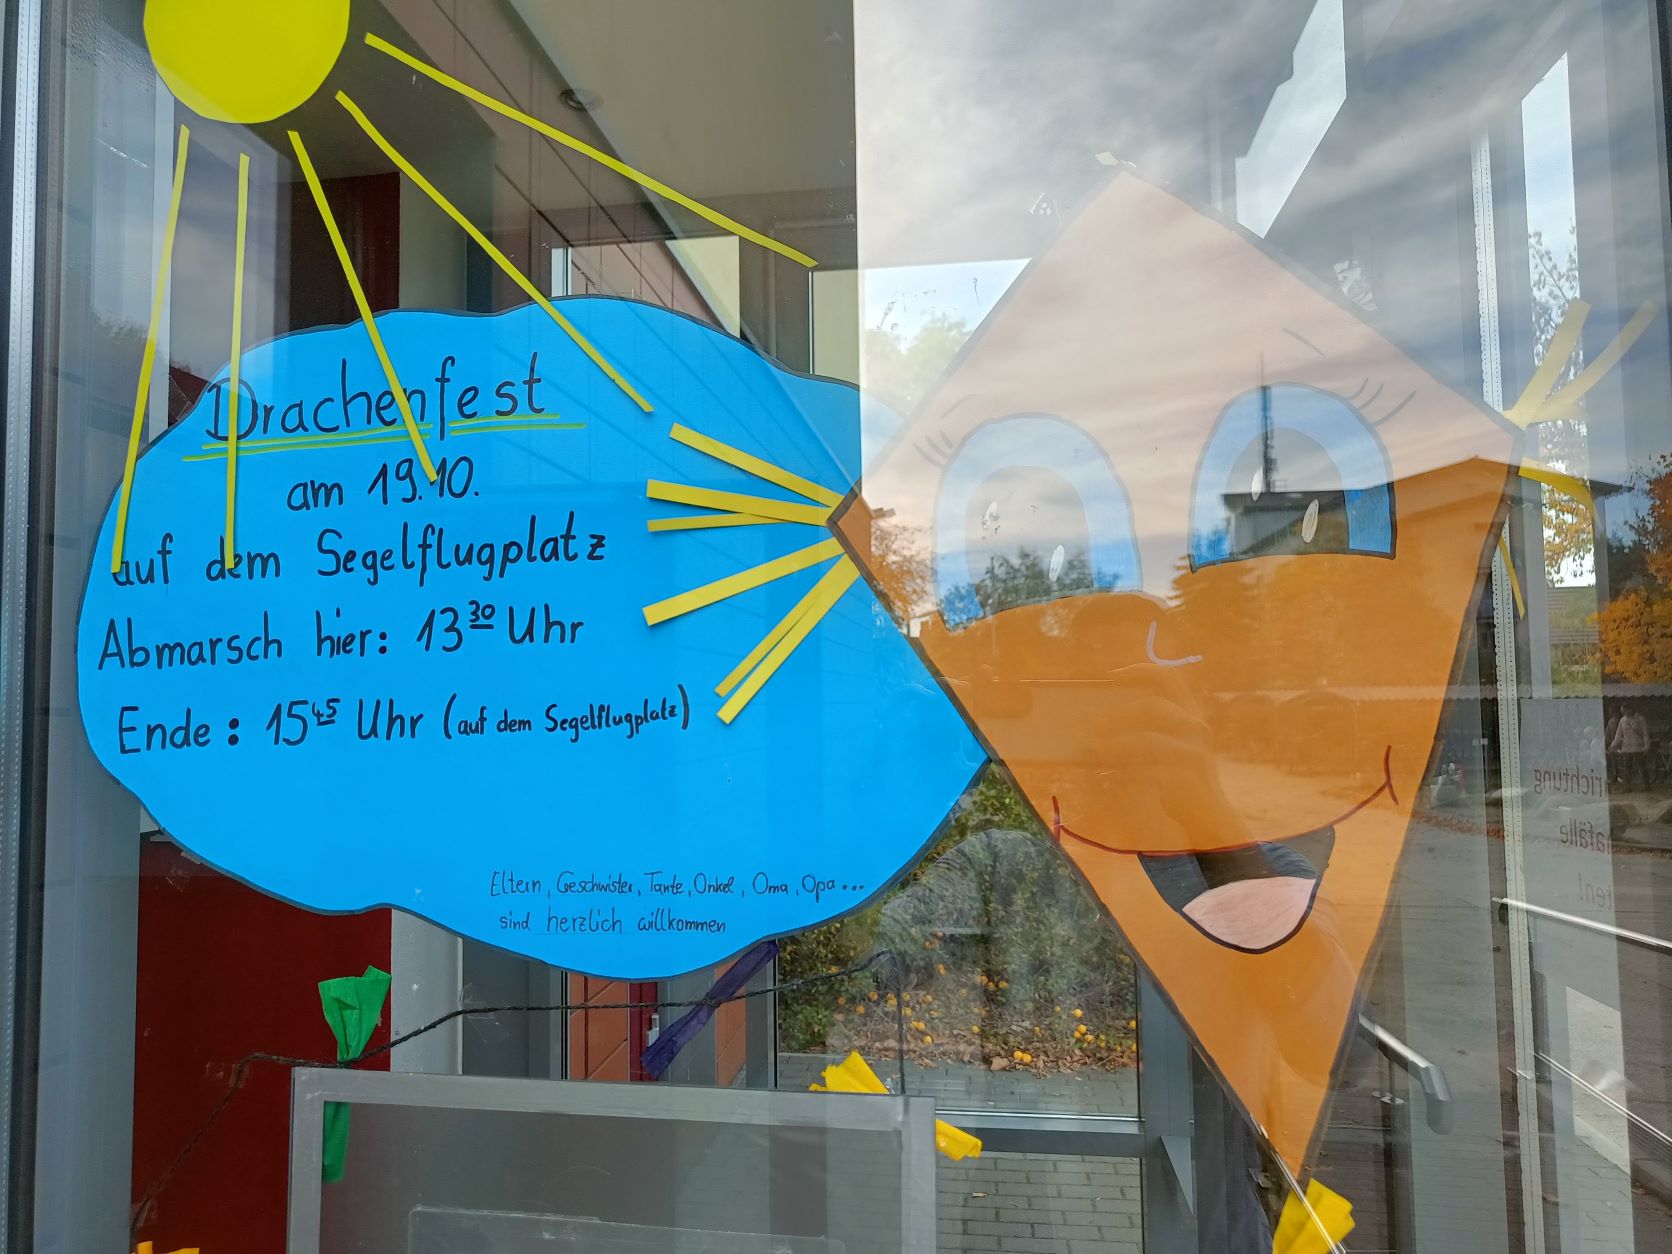 Drachenfest
am 19.10.
auf dem Segelflugplatz
Abmarsch hier: 13³⁰ Uhr
Ende: 15⁴⁵ Uhr (auf dem Segelflugplatz)
Eltern, Geschwister, Tante, Onkel, Oma, Opa...
sind herzlich willkommen
richtung
afälle
ten!